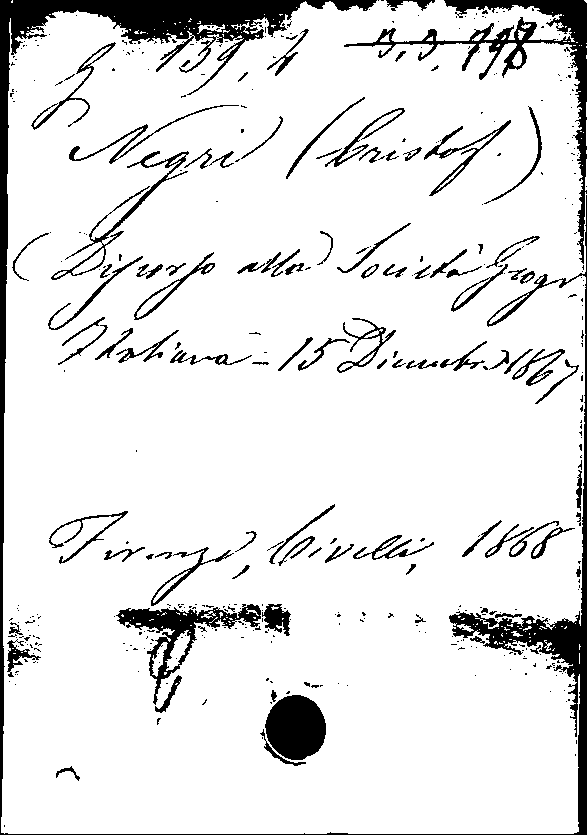 G. 139, 4 3.3.198
Negri (Cristof.)
(Discorso alla) Società Geogr.
Italiana - 15 Dicembre 1867
Firenze, Civelli, 1868